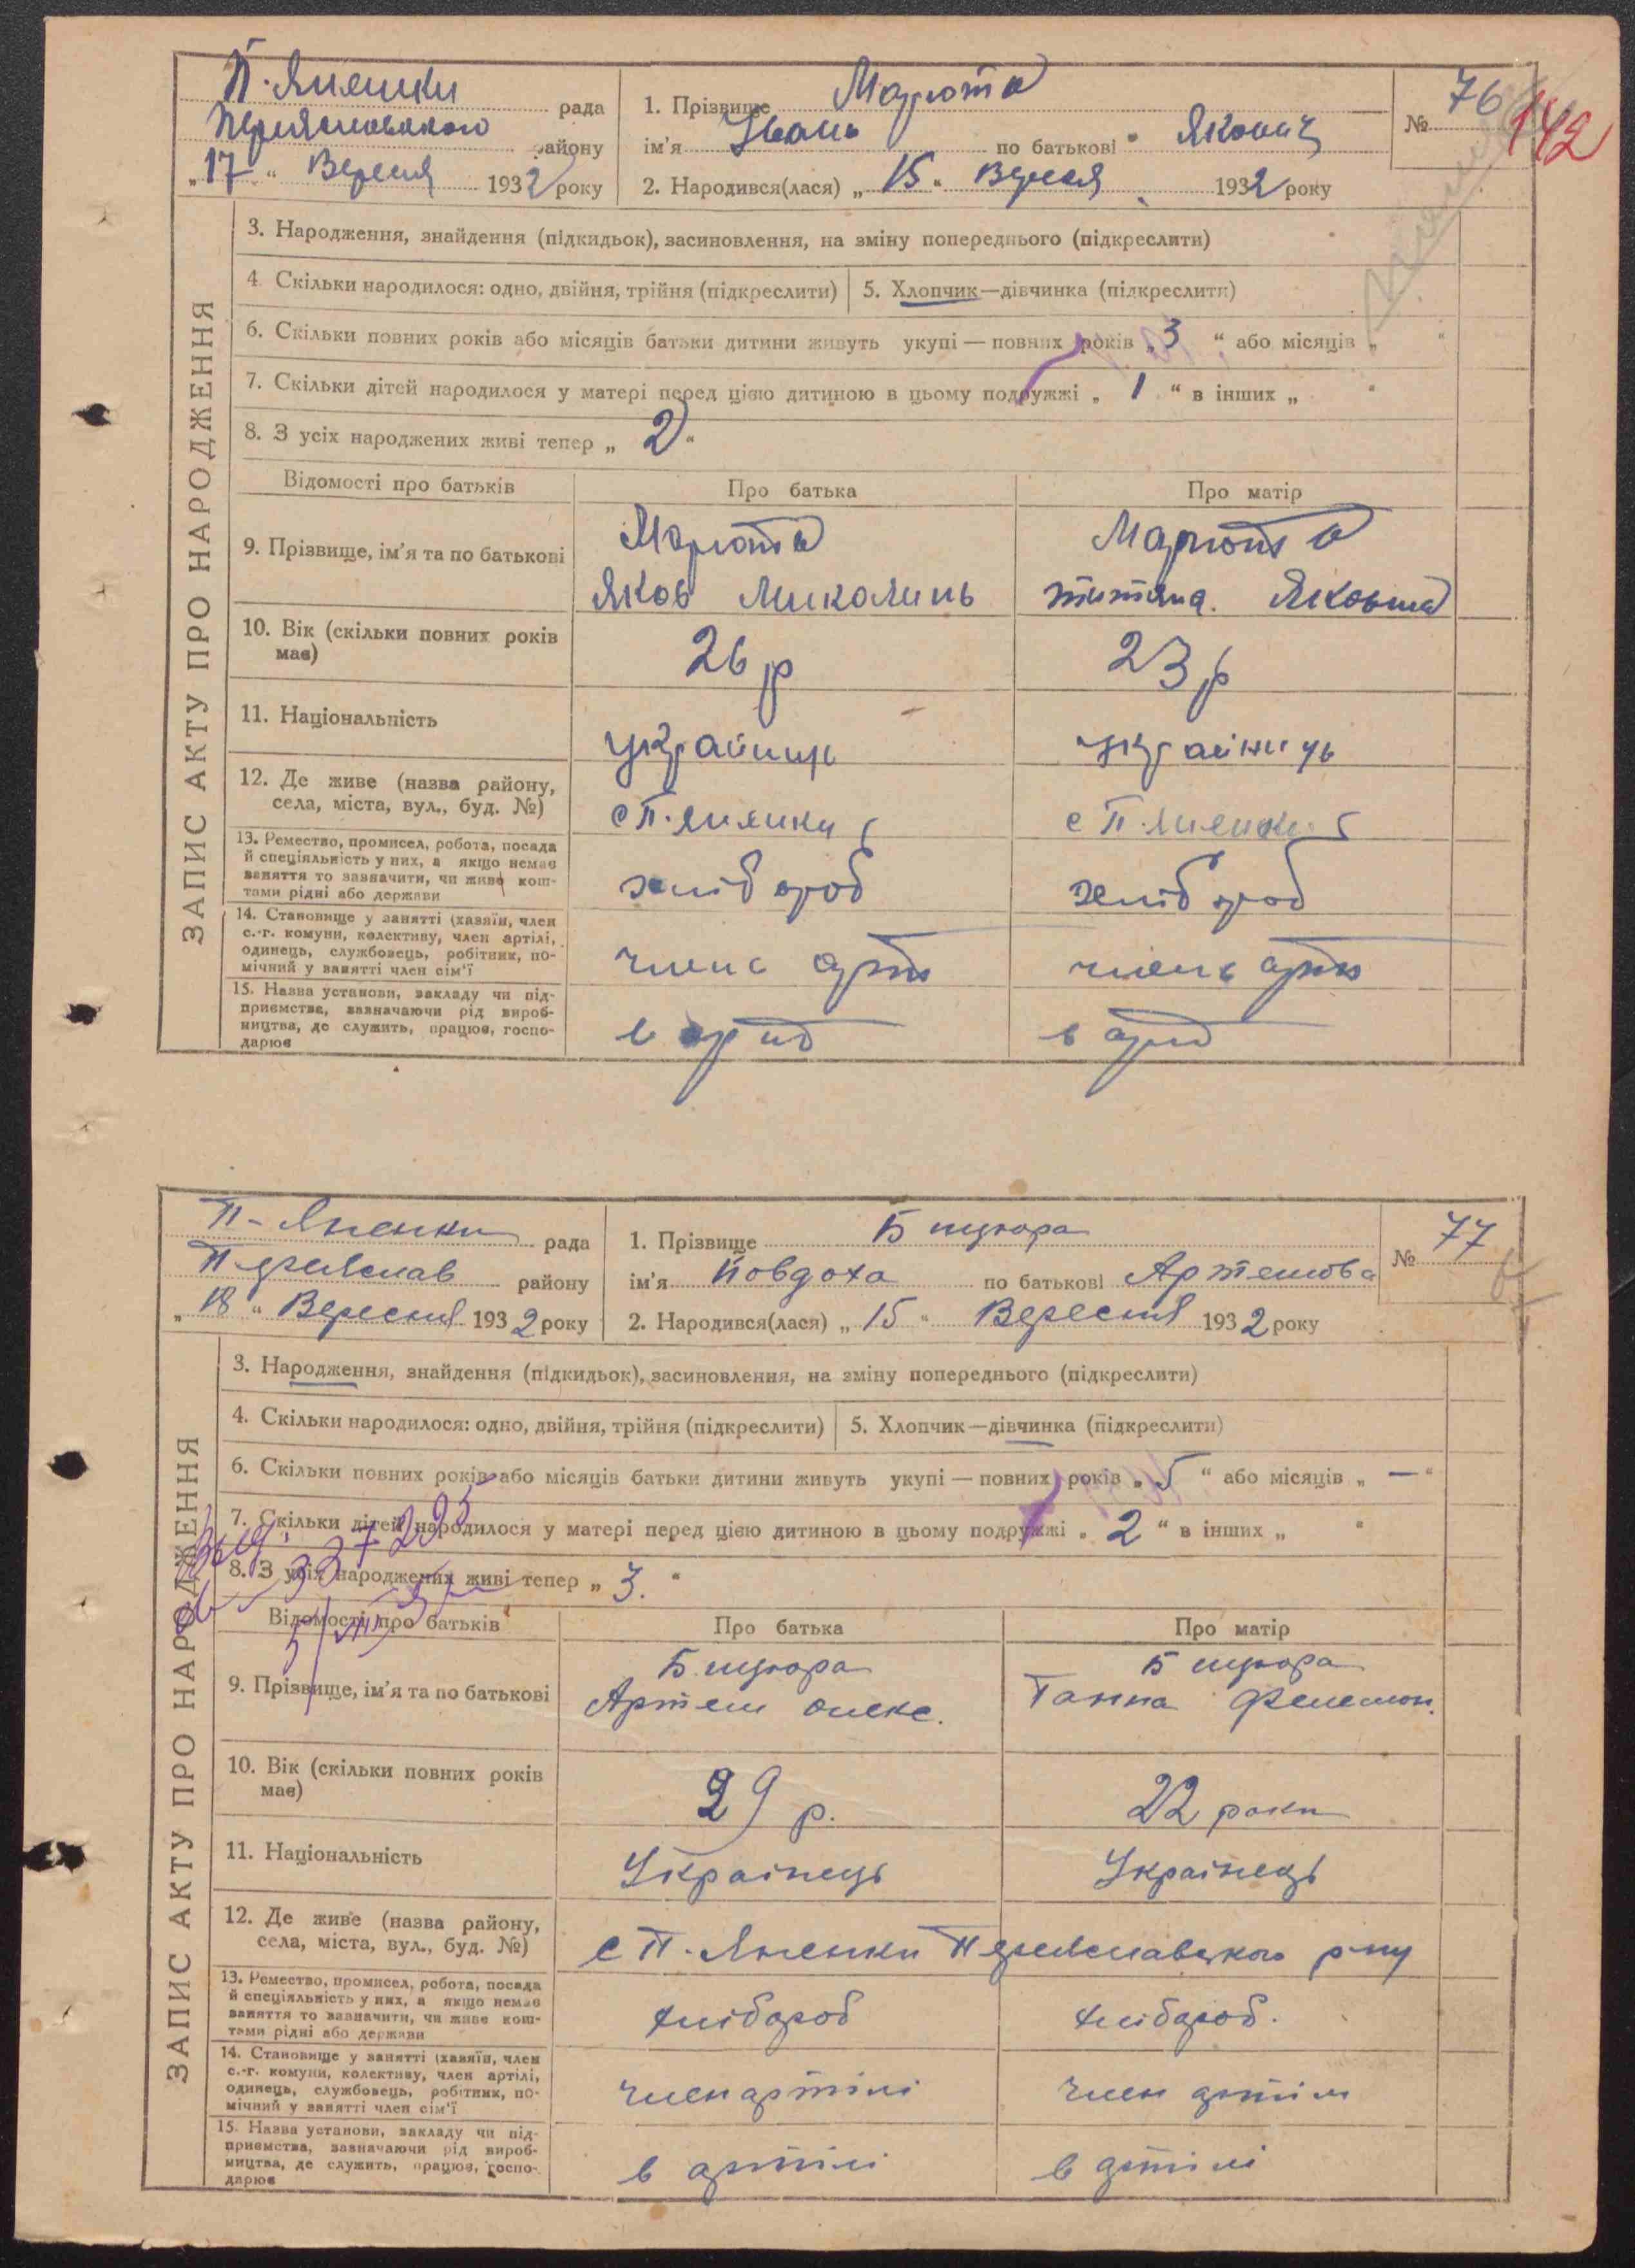 П. Яненки рада
Переяславського району
„17“ Вересня 1932 року
1. Прізвище Марюта
ім'я Івань по батькові Якович
2. Народився(лася) „15“ Вересня 1932 року
№ 76
142
ЗАПИС АКТУ ПРО НАРОДЖЕННЯ
3. Народження, знайдення (підкидьок), засиновлення, на зміну попереднього (підкреслити)
4. Скільки народилося: одно, двійня, трійня (підкреслити) 5. Хлопчик—дівчинка (підкреслити)
6. Скільки повних років або місяців батьки дитини живуть укупі — повних років „3“ або місяців „ “
7. Скільки дітей народилося у матері перед цією дитиною в цьому подружжі „1“ в інших „ “
8. З усіх народжених живі тепер „2“
Відомості про батьків Про батька Про матір
9. Прізвище, ім'я та по батькові
Марюта Марюта
Яков Миколинь Титяна. Яковна
10. Вік (скільки повних років має) 26 р 23 р
11. Національність україниць україниць
12. Де живе (назва району, села, міста, вул., буд. №) с П. Яненки с П. Яненки
13. Ремество, промисел, робота, посада
й спеціяльність у них, а якщо немає
заняття то зазначити, чи живе кош-
тами рідні або держави
хлібороб хлібороб
14. Становище у занятті (хазяїн, член
с.-г. комуни, колективу, член артілі,
одинець, службовець, робітник, по-
мічний у занятті член сім'ї
член арт член арт
15. Назва установи, закладу чи під-
приємства, зазначаючи рід вироб-
ництва, де служить, працює, госпо-
дарює
в арт в арт
П-Яненки рада
Переяслав району
„18“ Вересня 1932 року
1. Прізвище Бицюра
ім'я Йовдоха по батькові Артемова
2. Народився(лася) „15“ Вересня 1932 року
№ 77
ЗАПИС АКТУ ПРО НАРОДЖЕННЯ
3. Народження, знайдення (підкидьок), засиновлення, на зміну попереднього (підкреслити)
4. Скільки народилося: одно, двійня, трійня (підкреслити) 5. Хлопчик—дівчинка (підкреслити)
6. Скільки повних років або місяців батьки дитини живуть укупі — повних років „5“ або місяців „—“
7. Скільки дітей народилося у матері перед цією дитиною в цьому подружжі „2“ в інших „ “
8. З усіх народжених живі тепер „3.“
Відомості про батьків Про батька Про матір
9. Прізвище, ім'я та по батькові
Бицюра Бицюра
Артем Олекс. Ганна Филемон.
10. Вік (скільки повних років має) 29 р. 22 роки
11. Національність Українець Українець
12. Де живе (назва району, села, міста, вул., буд. №) с П. Яненки Переяславського р-ну
13. Ремество, промисел, робота, посада
й спеціяльність у них, а якщо немає
заняття то зазначити, чи живе кош-
тами рідні або держави
хлібороб хлібороб.
14. Становище у занятті (хазяїн, член
с.-г. комуни, колективу, член артілі,
одинець, службовець, робітник, по-
мічний у занятті член сім'ї
член артілі член артілі
15. Назва установи, закладу чи під-
приємства, зазначаючи рід вироб-
ництва, де служить, працює, госпо-
дарює
в артілі в артілі